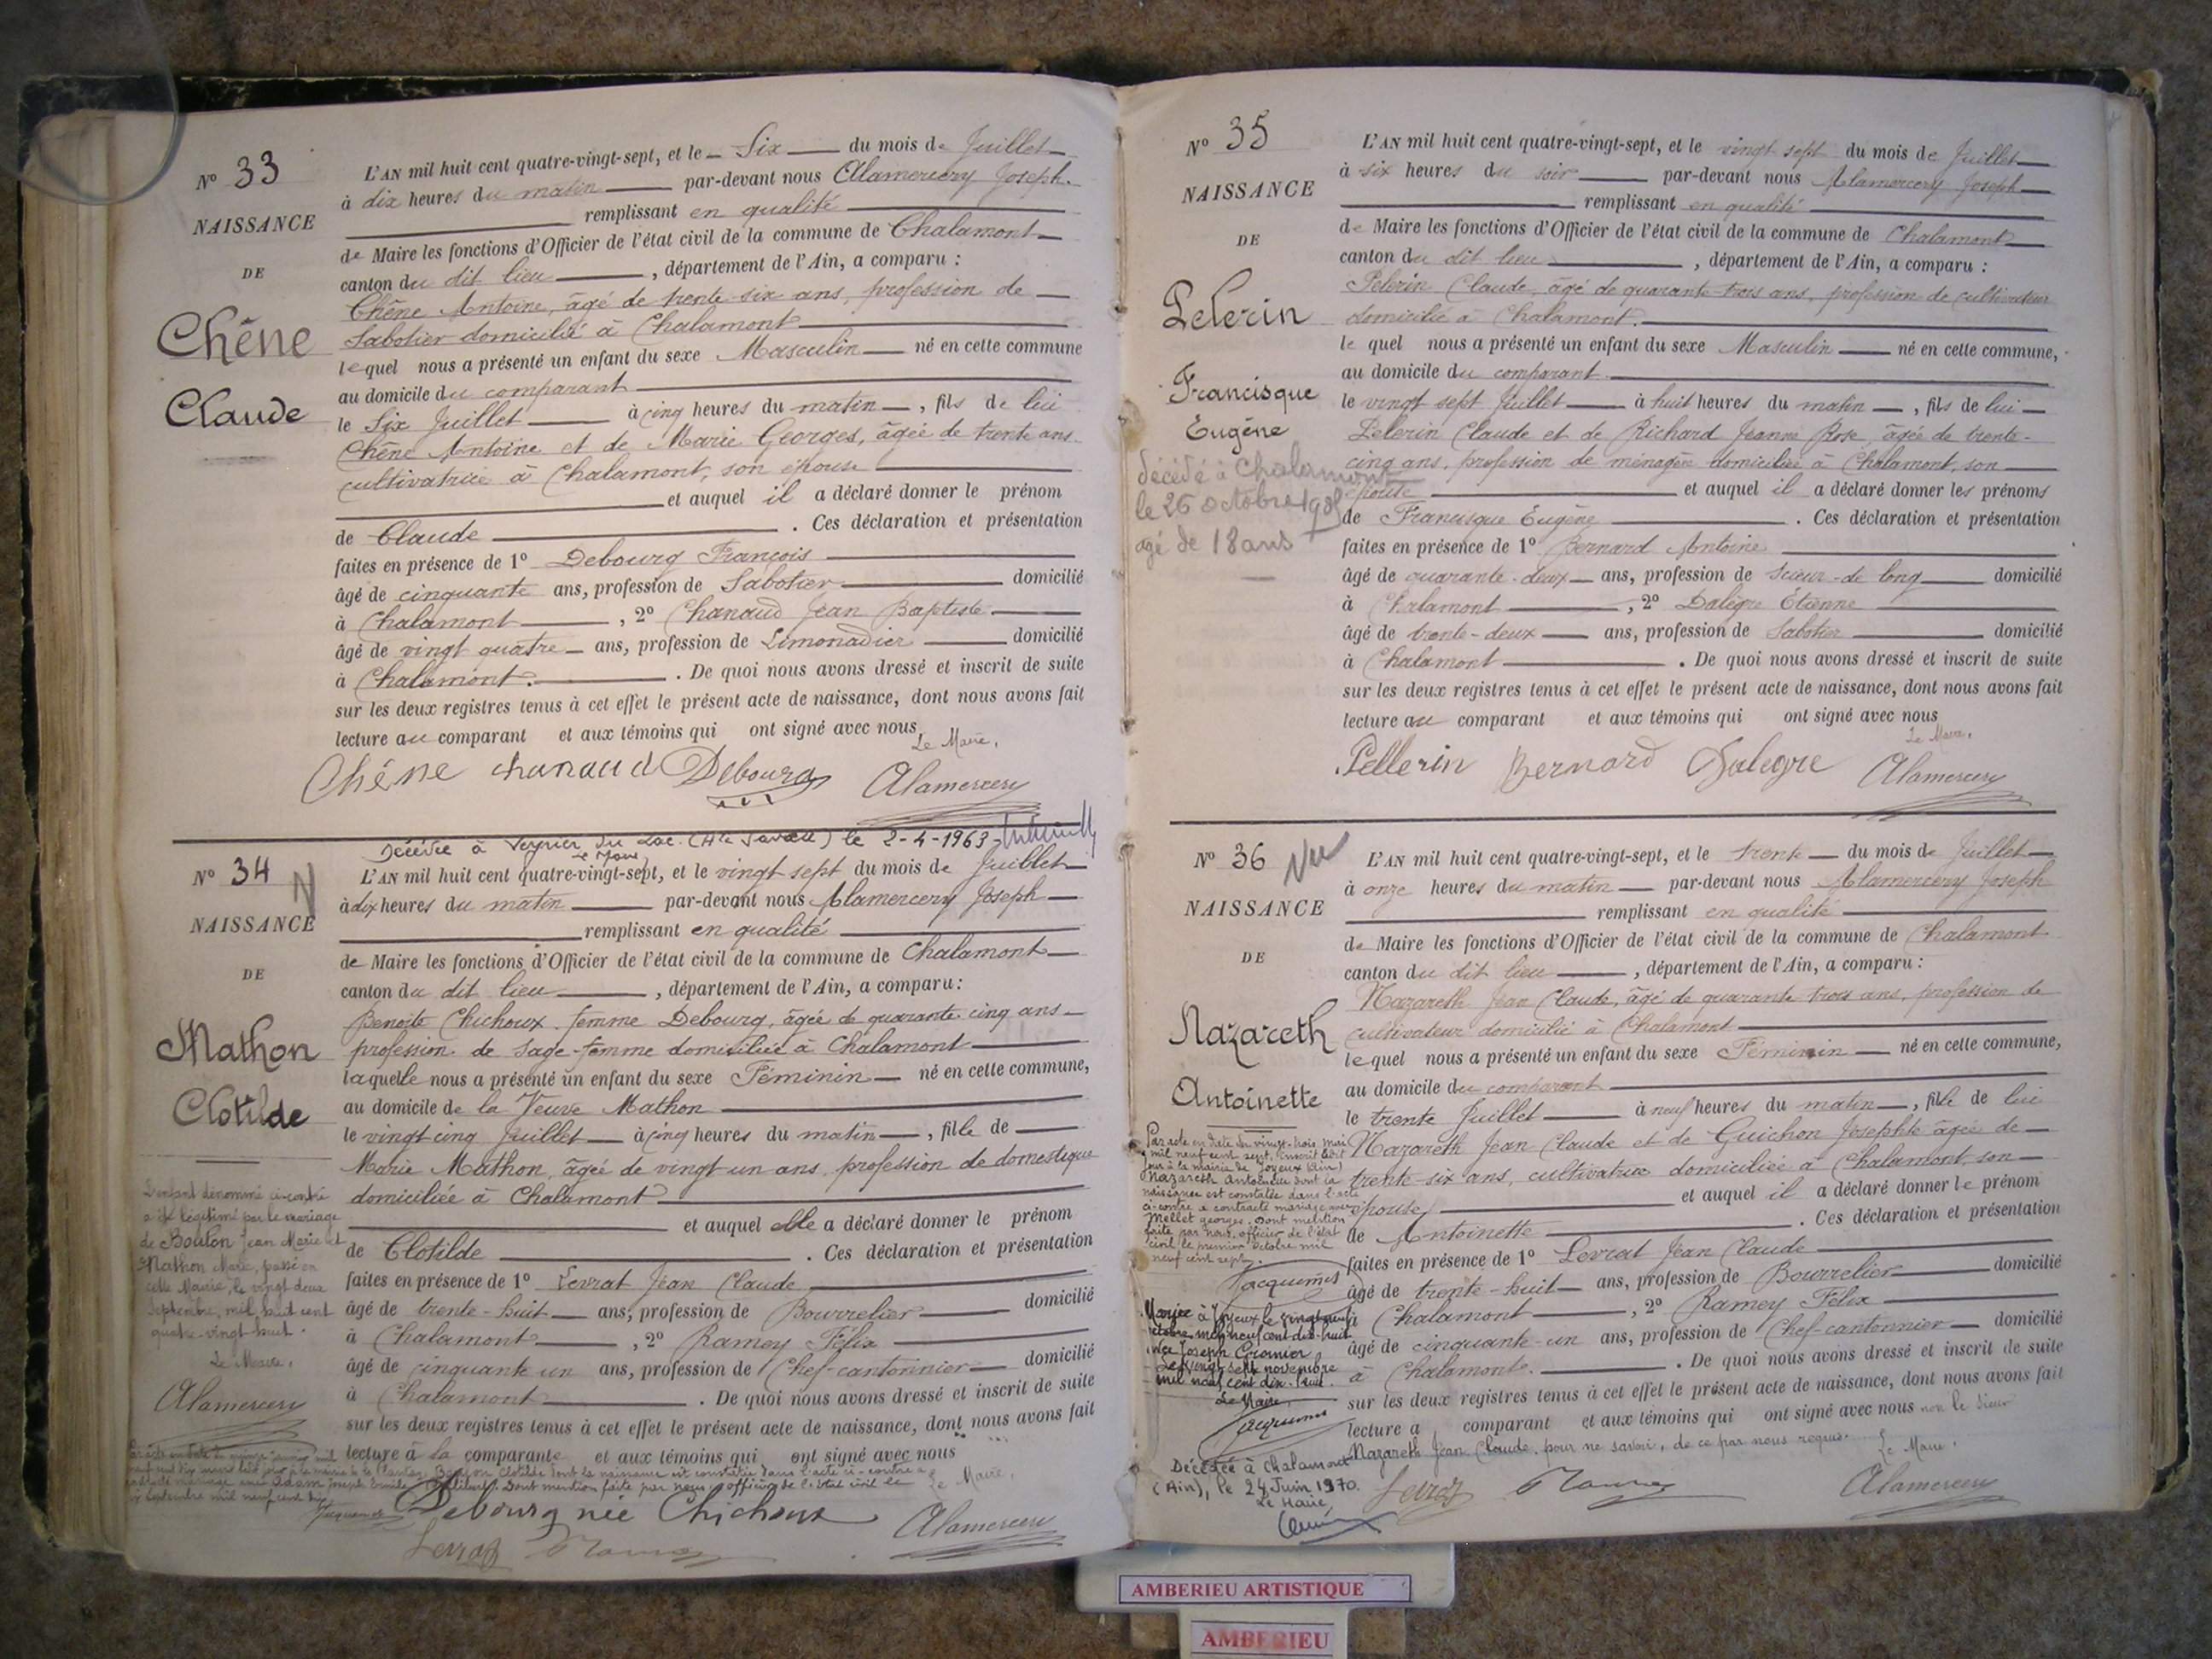 N° 33
NAISSANCE
DE
Chêne
Claude
L'AN mil huit cent quatre-vingt-sept, et le Six du mois de Juillet
à dix heures du matin par-devant nous Alamercery Joseph.
remplissant en qualité
de Maire les fonctions d'Officier de l'état civil de la commune de Chalamont
canton du dit lieu , département de l'Ain, a comparu :
Chêne Antoine, âgé de trente-six ans, profession de
Sabotier domicilié à Chalamont
lequel nous a présenté un enfant du sexe Masculin né en cette commune
au domicile du comparant
le Six Juillet à cinq heures du matin , fils de lui
Chêne Antoine et de Marie Georges, âgée de trente ans
cultivatrice à Chalamont, son épouse
et auquel il a déclaré donner le prénom
de Claude . Ces déclaration et présentation
faites en présence de 1° Debourg François
âgé de cinquante ans, profession de Sabotier domicilié
à Chalamont , 2° Chanaud Jean Baptiste
âgé de vingt quatre ans, profession de Limonadier domicilié
à Chalamont. . De quoi nous avons dressé et inscrit de suite
sur les deux registres tenus à cet effet le présent acte de naissance, dont nous avons fait
lecture au comparant et aux témoins qui ont signé avec nous
Le Maire,
Chêne chanaud Debourg Alamercery
Décédée à Veyrier du Lac (Hte Savoie) le 2-4-1963
Le Maire
N° 34
N
NAISSANCE
DE
Mathon
Clotilde
L'AN mil huit cent quatre-vingt-sept, et le vingt sept du mois de Juillet
à dix heures du matin par-devant nous Alamercery Joseph
remplissant en qualité
de Maire les fonctions d'Officier de l'état civil de la commune de Chalamont
canton du dit lieu , département de l'Ain, a comparu :
Benoite Chichoux femme Debourg, âgée de quarante cinq ans
profession de Sage-femme domiciliée à Chalamont
laquelle nous a présenté un enfant du sexe Féminin né en cette commune,
au domicile de la Veuve Mathon
le vingt cinq Juillet à cinq heures du matin , fille de
Marie Mathon, âgée de vingt un ans, profession de domestique
domiciliée à Chalamont
et auquel elle a déclaré donner le prénom
de Clotilde . Ces déclaration et présentation
faites en présence de 1° Levrat Jean Claude
âgé de trente-huit ans, profession de Bourrelier domicilié
à Chalamont , 2° Ramey Félix
âgé de cinquante un ans, profession de Chef-cantonnier domicilié
à Chalamont . De quoi nous avons dressé et inscrit de suite
sur les deux registres tenus à cet effet le présent acte de naissance, dont nous avons fait
lecture à la comparante et aux témoins qui ont signé avec nous
Le Maire,
L'enfant dénommé ci-contre
a été légitimé par le mariage
de Bouton Jean Marie et
Mathon Marie, passé en
cette Mairie, le vingt deux
Septembre, mil huit cent
quatre-vingt-huit.
Le Maire,
Alamercery
Clotilde dont la naissance est constatée dans l'acte ci-contre a
Dont mention faite par nous officier de l'état civil le
Septembre mil neuf cent dix
Jacquemes
Debourg née Chichoux Alamercery
Levrat Ramey
N° 35
NAISSANCE
DE
Pelerin
Francisque
Eugène
décédé à Chalamont
le 26 octobre 1905
agé de 18 ans
L'AN mil huit cent quatre-vingt-sept, et le vingt sept du mois de Juillet
à six heures du soir par-devant nous Alamercery Joseph
remplissant en qualité
de Maire les fonctions d'Officier de l'état civil de la commune de Chalamont
canton du dit lieu , département de l'Ain, a comparu :
Pelerin Claude, âgé de quarante-trois ans, profession de cultivateur
domicilié à Chalamont.
lequel nous a présenté un enfant du sexe Masculin né en cette commune,
au domicile du comparant
le vingt sept Juillet à huit heures du matin , fils de lui
Pelerin Claude et de Richard Jeanne Rose, âgée de trente-
cinq ans, profession de ménagère domiciliée à Chalamont, son
épouse et auquel il a déclaré donner les prénoms
de Francisque Eugène . Ces déclaration et présentation
faites en présence de 1° Bernard Antoine
âgé de quarante-deux ans, profession de Scieur-de long domicilié
à Chalamont , 2° Dalègre Étienne
âgé de trente-deux ans, profession de Sabotier domicilié
à Chalamont . De quoi nous avons dressé et inscrit de suite
sur les deux registres tenus à cet effet le présent acte de naissance, dont nous avons fait
lecture au comparant et aux témoins qui ont signé avec nous
Le Maire,
Pellerin Bernard Dalegre Alamercery
N° 36
Vu
NAISSANCE
DE
Nazareth
Antoinette
L'AN mil huit cent quatre-vingt-sept, et le trente du mois de Juillet
à onze heures du matin par-devant nous Alamercery Joseph
remplissant en qualité
de Maire les fonctions d'Officier de l'état civil de la commune de Chalamont
canton du dit lieu , département de l'Ain, a comparu :
Nazareth Jean Claude, âgé de quarante trois ans, profession de
cultivateur domicilié à Chalamont
lequel nous a présenté un enfant du sexe Féminin né en cette commune,
au domicile du comparant
le trente Juillet à neuf heures du matin , fille de lui
Nazareth Jean Claude et de Guichon Josephte âgée de
trente-six ans, cultivatrice domiciliée à Chalamont, son
épouse et auquel il a déclaré donner le prénom
de Antoinette . Ces déclaration et présentation
faites en présence de 1° Levrat Jean Claude
âgé de trente-huit ans, profession de Bourrelier domicilié
à Chalamont , 2° Ramey Félix
âgé de cinquante-un ans, profession de Chef-cantonnier domicilié
à Chalamont. . De quoi nous avons dressé et inscrit de suite
sur les deux registres tenus à cet effet le présent acte de naissance, dont nous avons fait
lecture a comparant et aux témoins qui ont signé avec nous non le Sieur
Nazareth Jean Claude, pour ne savoir, de ce par nous requis.
Le Maire,
Par acte en date du vingt-trois mai
mil neuf cent sept, inscrit ledit
jour à la mairie de Joyeux (Ain)
Nazareth Antoinette dont la
naissance est constatée dans l'acte
ci-contre a contracté mariage avec
Mellet georges. Dont mention
faite par nous, officier de l'état
civil le premier octobre mil
neuf cent sept.
Jacquemes
Mariée à Joyeux le vingt neuf
octobre mil neuf cent dix-huit
avec Joseph Cormier
Le vingt sept novembre
mil neuf cent dix-huit.
Le Maire,
Jacquemes
Décédée à Chalamont
(Ain), le 24 Juin 1970.
Le Maire,
Levrat Ramey Alamercery
AMBERIEU ARTISTIQUE
AMBERIEU